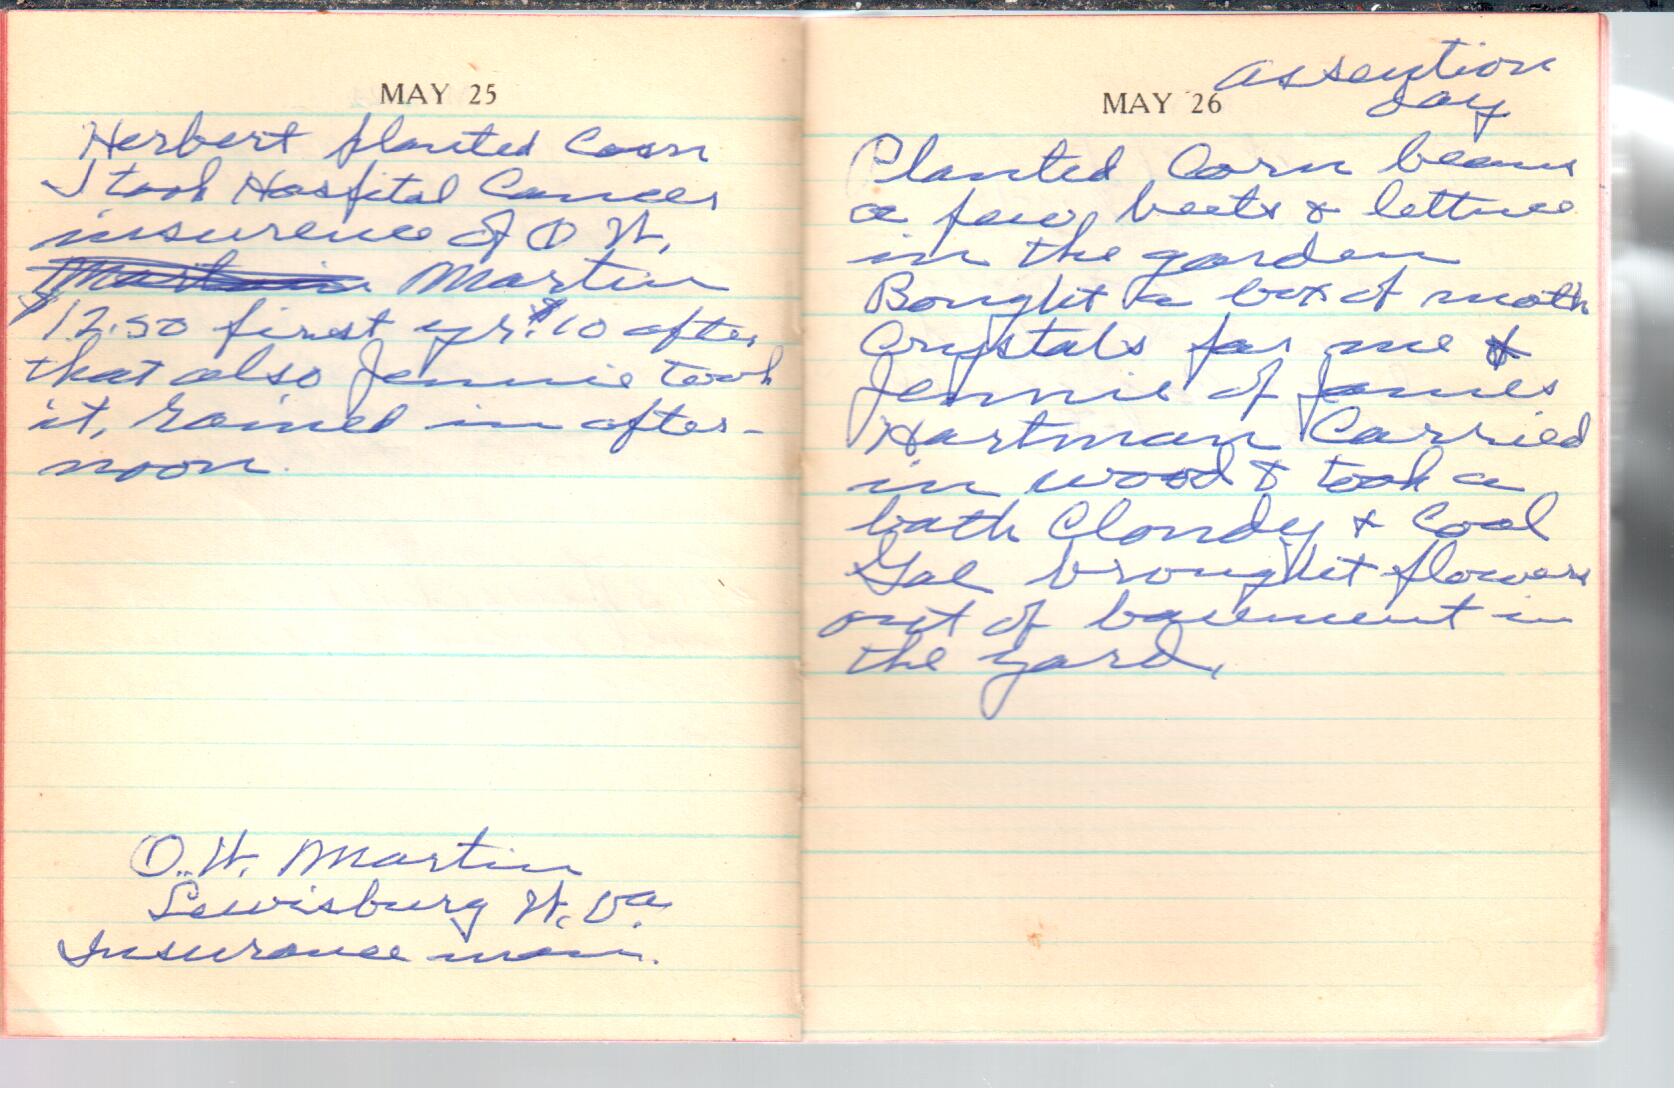 MAY 25
Herbert planted Corn
I took Hospital Cancer
insurence of O W.
Martin Martin
$12.50 first yr. $10 after
that also Jennie took
it, rained in after-
noon.
O.. W. Martin
Lewisburg W. Va.
Insurance man.
assention
MAY 26 day
Planted Corn beans
a few beets & lettuce
in the garden
Bought a box of moth
Crystals for me &
Jennie of James
Hartman Carried
in wood & took a
bath Cloudy & Cool
brought flowers
out of basement in
the yard.